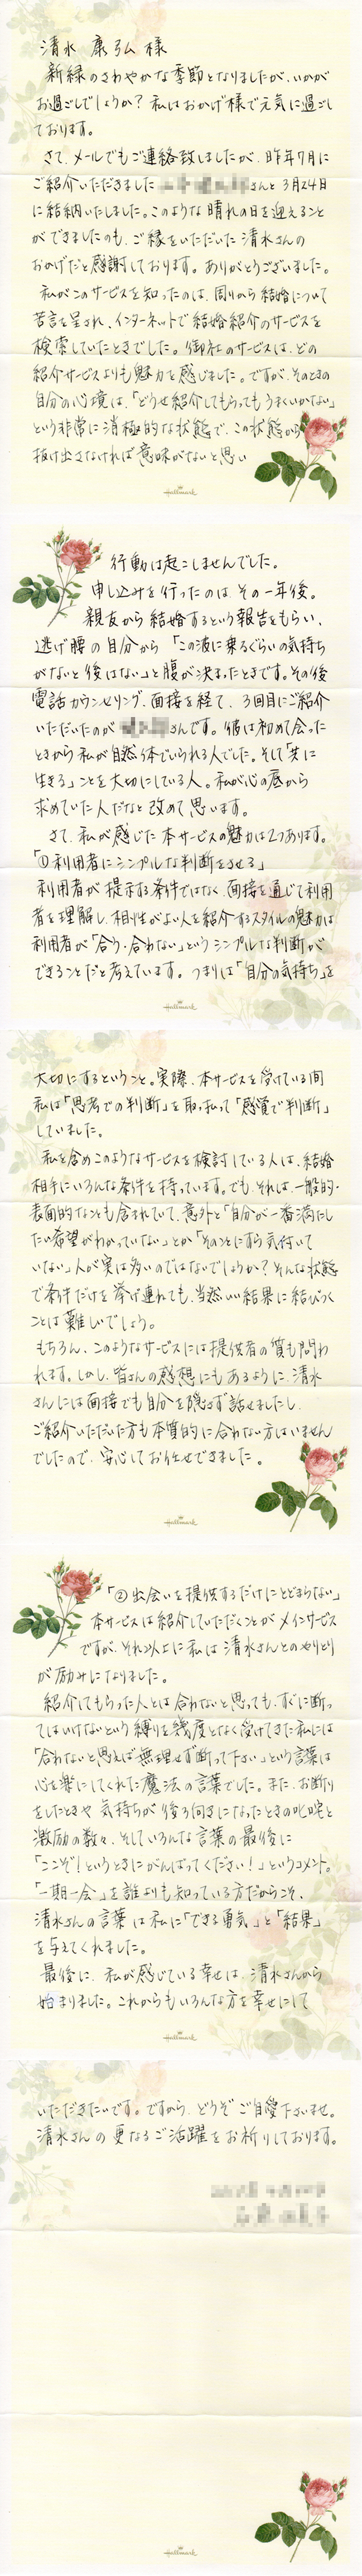 清水 康弘 様
新緑のさわやかな季節となりましたが、いかが
お過ごしでしょうか？私はおかげ様で元気に過ごし
ております。
さて、メールでもご連絡致しましたが、昨年7月に
ご紹介いただきました さんと 3月24日
に結納いたしました。このような晴れの日を迎えること
ができましたのも、ご縁をいただいた清水さんの
おかげだと感謝しております。ありがとうございました。
私がこのサービスを知ったのは、周りから結婚について
苦言を呈され、インターネットで結婚紹介のサービスを
検索していたときでした。御社のサービスは、どの
紹介サービスよりも魅力を感じました。ですが、そのときの
自分の心境は、「どうせ紹介してもらってもうまくいかない」
という非常に消極的な状態で、この状態から
抜け出さなければ意味がないと思い
Hallmark
行動は起こしませんでした。
申し込みを行ったのは、その一年後。
親友から結婚するという報告をもらい、
逃げ腰の自分から「この波に乗るぐらいの気持ち
がないと後はない」と腹が決まったときです。その後
電話カウンセリング、面接を経て、3回目にご紹介
いただいたのが さんです。彼は初めて会った
ときから私が自然体でいられる人でした。そして「共に
生きる」ことを大切にしている人。私が心の底から
求めていた人だなと改めて思います。
さて、私が感じた本サービスの魅力は2つあります。
「①利用者にシンプルな判断をさせる」
利用者が提示する条件ではなく、面接を通じて利用
者を理解し、相性がよい人を紹介するスタイルの魅力は
利用者が「合う・合わない」というシンプルな判断が
できることだと考えています。つまりは「自分の気持ち」を
Hallmark
大切にするということ。実際、本サービスを受けている間
私は「思考での判断」を取っ払って「感覚で判断」
していました。
私を含めこのようなサービスを検討している人は、結婚
相手にいろんな条件を持っています。でも、それは、一般的・
表面的なことも含まれていて、意外と「自分が一番満にし
たい希望がわかっていない」とか「そのことにすら気付いて
いない」人が実は多いのではないでしょうか？そんな状態
で条件だけを挙げ連れても、当然いい結果に結びつく
ことは難しいでしょう。
もちろん、このようなサービスには提供者の質も問わ
れます。しかし、皆さんの感想にもあるように、清水
さんには面接でも自分を隠さず話せましたし、
ご紹介いただいた方も本質的に合わない方はいません
でしたので、安心してお任せできました。
Hallmark
「②出会いを提供するだけにとどまらない」
本サービスは紹介していただくことがメインサービス
ですが、それ以上に私は清水さんとのやりとり
が励みになりました。
紹介してもらった人とは合わないと思っても、すぐに断っ
てはいけないという縛りを幾度となく受けてきた私には
「合わないと思えば無理せず断って下さい」という言葉は
心を楽にしてくれた魔法の言葉でした。また、お断り
をしたときや気持ちが後ろ向きになったときの叱咤と
激励の数々、そしていろんな言葉の最後に
「ここぞ！というときにがんばってください！」というコメント。
「一期一会」を誰よりも知っている方だからこそ、
清水さんの言葉は私に「できる勇気」と「結果」
を与えてくれました。
最後に、私が感じている幸せは、清水さんから
始まりました。これからもいろんな方を幸せにして
Hallmark
いただきたいです。ですから、どうぞご自愛下さいませ。
清水さんの更なるご活躍をお祈りしております。
Hallmark